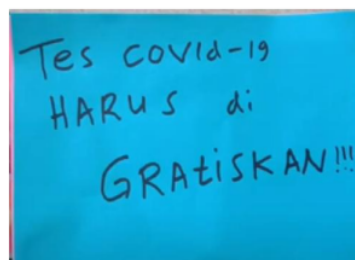 Tes COVId-19
HARUS di
GRAtiSKAN!!!